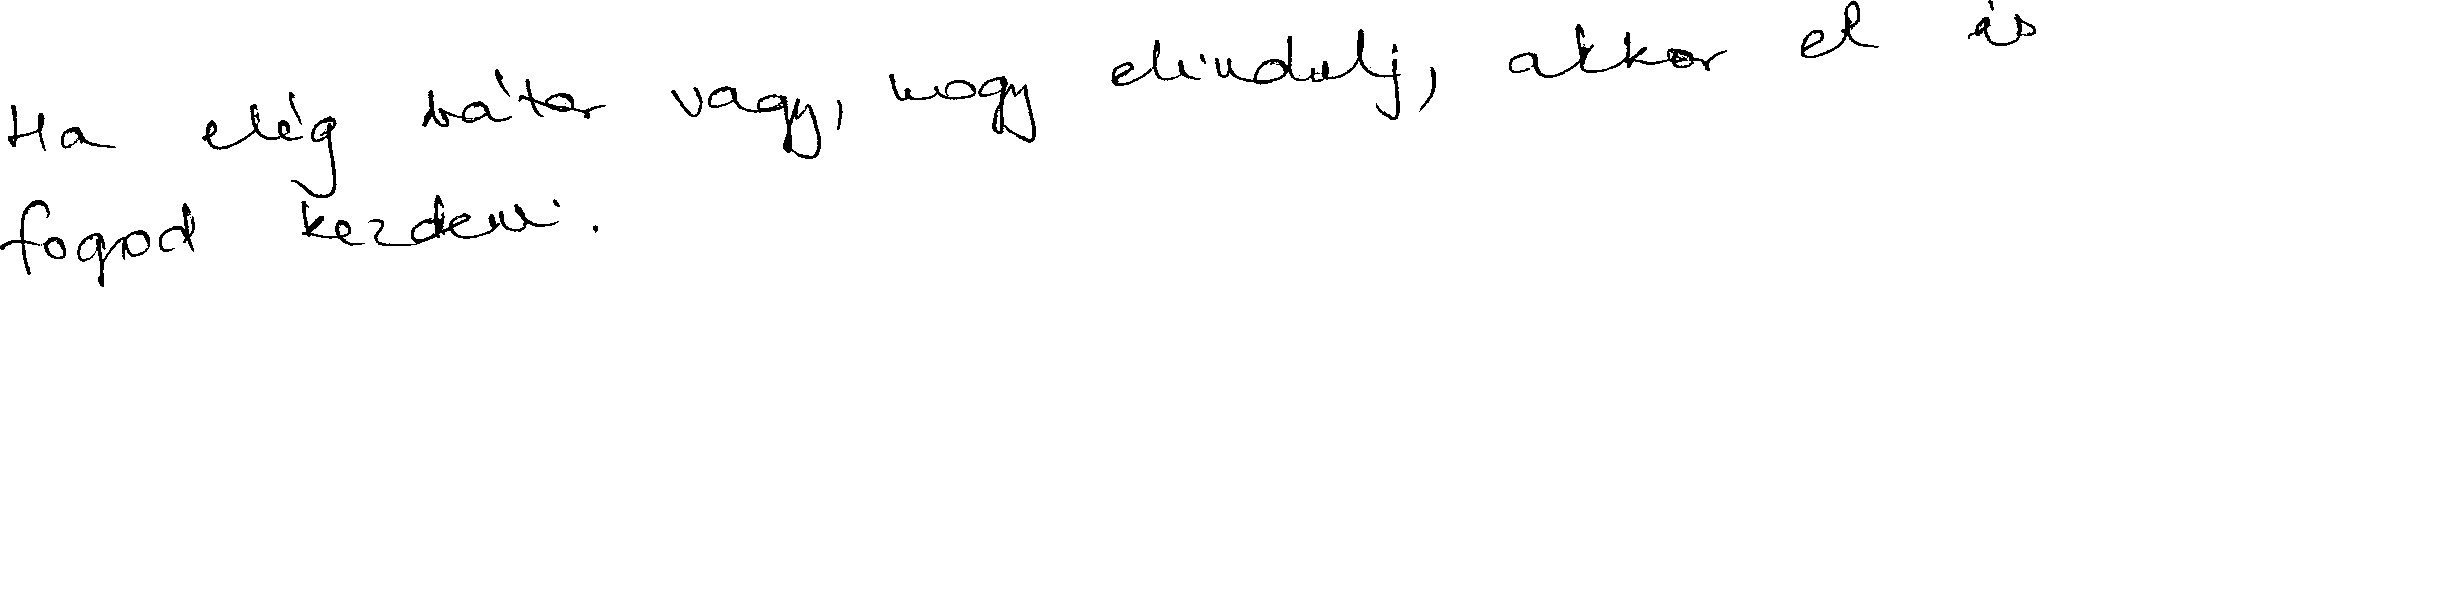 Ha elég bátor vagy, hogy elindulj, akkor el is
fogod kezdeni.